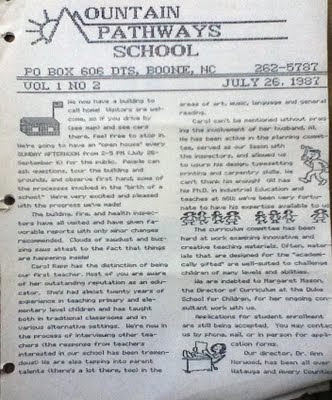 MOUNTAIN
PATHWAYS
SCHOOL
PO BOX 606 DTS, BOONE, NC 262-5787
VOL 1 NO 2 JULY 26, 1987
We now have a building to
call home! Visitors are wel-
come, so if you drive by
(see map) and see cars
there, feel free to stop in.
We're going to have an "open house" every
SUNDAY AFTERNOON from 2-5 PM (July 26-
September 6) for the public. People can
ask questions, tour the building and
grounds, and observe first hand, some of
the processes involved in the "birth of a
school." We're very excited and pleased
with the progress we've made!
The building, fire, and health inspec-
tors have all visited and have given fa-
vorable reports with only minor changes
recommended. Clouds of sawdust and buz-
zing saws attest to the fact that things
are happening inside!
Carol Rapp has the distinction of being
our first teacher. Most of you are aware
of her outstanding reputation as an edu-
cator. She's had about twenty years of
experience in teaching primary and ele-
mentary level children and has taught
both in traditional classrooms and in
various alternative settings. We're now in
the process of interviewing other tea-
chers (the response from teachers
interested in our school has been tremen-
dous!) We are also tapping parent
talents (there's a lot there, too) in the
areas of art, music, language and general
reading.
Carol can't be mentioned without prais-
ing the involvement of her husband, Al.
He has been active in the planning commit-
tee, served as our liason with
the inspectors, and allowed us
to use his design, typesetting
printing and carpentry skills. We
can't thank him enough! Al has
his PhD. in Industrial Education and
teaches at ASU; we've been very fortu-
nate to have his expertise available to us
The curriculum committee has been
hard at work examining innovative and
creative teaching materials. Often, mater-
ials that are designed for the "academi-
cally gifted" are well-suited to challenge
children of many levels and abilities.
We are indebted to Margaret
the Director of Curriculum at the Duke
School for Children, for her ongoing con-
sultant work with us.
Applications for student enrollment
are still being accepted. You may contact
us by phone, mail, or in person for appli-
cation forms.
Our director, Dr. Ann
Norwood, has been all over
Watauga and Avery Counties